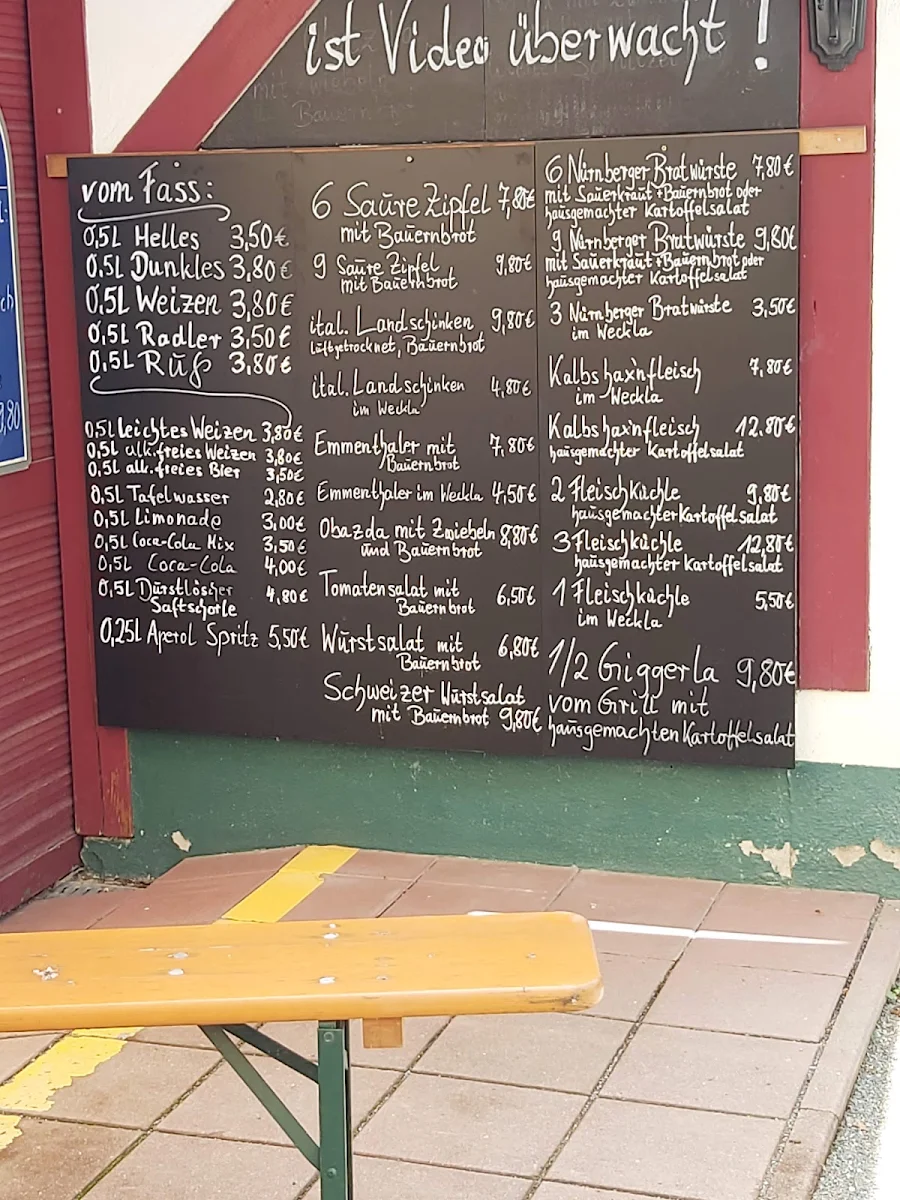 ist Video überwacht !
vom Fass:
0,5L Helles 3,50€
0,5L Dunkles 3,80€
0,5L Weizen 3,80€
0,5L Radler 3,50€
0,5L Ruß 3,80€
0,5L leichtes Weizen 3,80€
0,5L alk.freies Weizen 3,80€
0,5L alk.freies Bier 3,50€
0,5L Tafelwasser 2,80€
0,5L Limonade 3,00€
0,5L Coca-Cola Mix 3,50€
0,5L Coca-Cola 4,00€
0,5L Durstlöscher 4,80€
Saftschorle
0,25L Aperol Spritz 5,50€
6 Saure Zipfel 7,80€
mit Bauernbrot
9 Saure Zipfel 9,80€
mit Bauernbrot
ital. Landschinken 9,80€
luftgetrocknet, Bauernbrot
ital. Landschinken 4,80€
im Weckla
Emmenthaler mit 7,80€
Bauernbrot
Emmenthaler im Weckla 4,50€
Obazda mit Zwiebeln 8,80€
und Bauernbrot
Tomatensalat mit 6,50€
Bauernbrot
Wurstsalat mit 6,80€
Bauernbrot
Schweizer Wurstsalat
mit Bauernbrot 9,80€
6 Nürnberger Bratwürste 7,80€
mit Sauerkraut+Bauernbrot oder
hausgemachter Kartoffelsalat
9 Nürnberger Bratwürste 9,80€
mit Sauerkraut+Bauernbrot oder
hausgemachter Kartoffelsalat
3 Nürnberger Bratwürste 3,50€
im Weckla
Kalbshax'nfleisch 7,80€
im Weckla
Kalbshax'nfleisch 12,80€
hausgemachter Kartoffelsalat
2 Fleischküchle 9,80€
hausgemachter Kartoffelsalat
3 Fleischküchle 12,80€
hausgemachter Kartoffelsalat
1 Fleischküchle 5,50€
im Weckla
1/2 Giggerla 9,80€
vom Grill mit
hausgemachten Kartoffelsalat